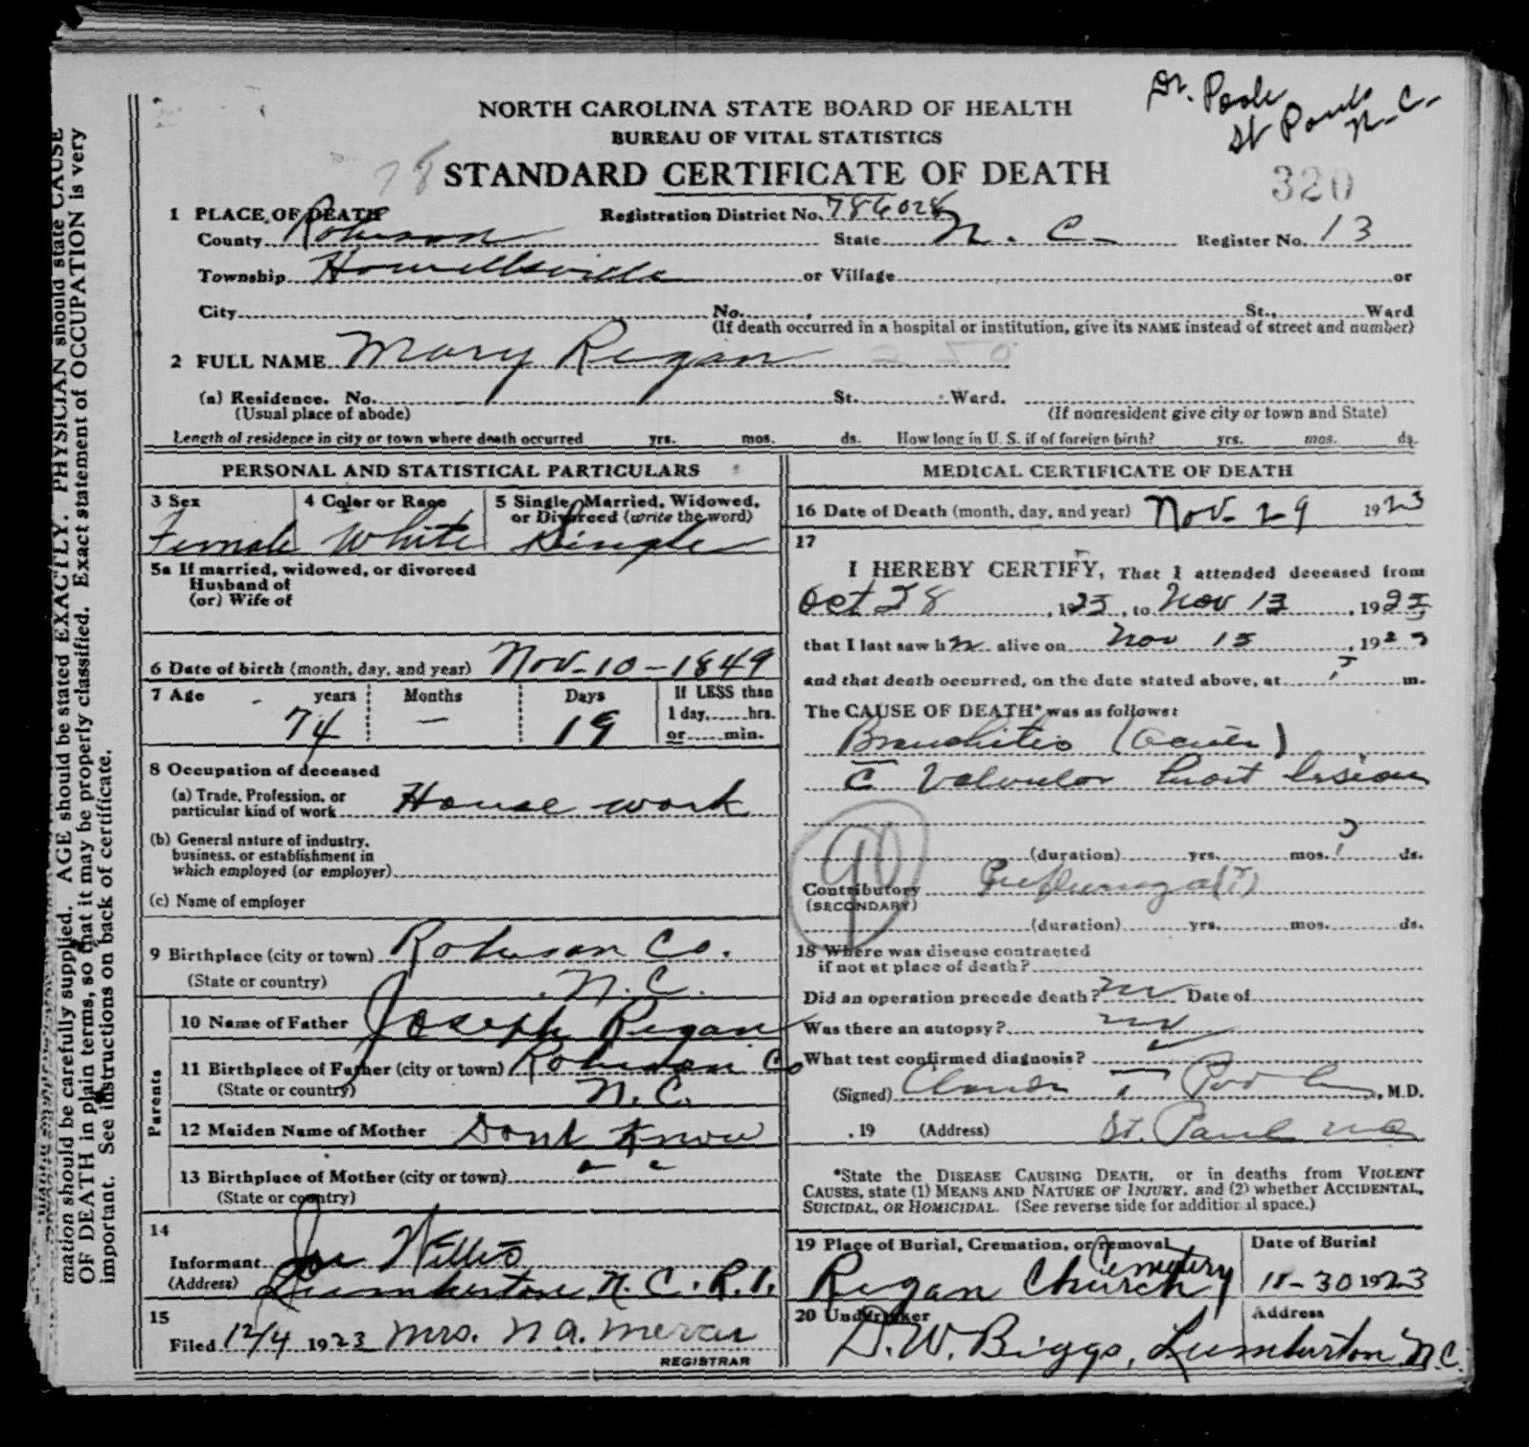 Dr. Poole
St Pauls
N. C.
NORTH CAROLINA STATE BOARD OF HEALTH
BUREAU OF VITAL STATISTICS
78 STANDARD CERTIFICATE OF DEATH
320
1 PLACE OF DEATH Registration District No. 786028
County Robeson State N. C. Register No. 13
Township Howellsville or Village or
City No. , St., Ward
(If death occurred in a hospital or institution, give its NAME instead of street and number)
2 FULL NAME Mary Regan
(a) Residence. No. St. Ward.
(Usual place of abode) (If nonresident give city or town and State)
Length of residence in city or town where death occurred yrs. mos. ds. How long in U. S. if of foreign birth? yrs. mos. ds.
PERSONAL AND STATISTICAL PARTICULARS
3 Sex 4 Color or Race 5 Single, Married, Widowed,
or Divorced (write the word)
Female White Single
5a If married, widowed, or divorced
Husband of
(or) Wife of
6 Date of birth (month, day, and year) Nov-10-1849
7 Age years Months Days If LESS than
1 day, hrs.
74 — 19 or min.
8 Occupation of deceased
(a) Trade, Profession, or
particular kind of work House work
(b) General nature of industry,
business, or establishment in
which employed (or employer)
(c) Name of employer
9 Birthplace (city or town) Robeson Co.
(State or country) N. C.
Parents
10 Name of Father Joseph Regan
11 Birthplace of Father (city or town) Robeson Co
(State or country) N. C.
12 Maiden Name of Mother Dont Know
13 Birthplace of Mother (city or town) " "
(State or country)
14
Informant Joe Willis
(Address) Lumberton N. C. R. 1.
15
Filed 12/4 1923 Mrs. N A. Mercer
REGISTRAR
MEDICAL CERTIFICATE OF DEATH
16 Date of Death (month, day, and year) Nov-29 1923
17
I HEREBY CERTIFY, That I attended deceased from
Oct 28, 1923, to Nov 13, 1923
that I last saw h alive on Nov 13, 1923
and that death occurred, on the date stated above, at ? m.
The CAUSE OF DEATH* was as follows:
Bronchitis (acute)
c̄ Valvular heart lesion
90
(duration) yrs. mos. ? ds.
Contributory Influenza (?)
(SECONDARY)
(duration) yrs. mos. ds.
18 Where was disease contracted
if not at place of death?
Did an operation precede death? no Date of
Was there an autopsy? no
What test confirmed diagnosis?
(Signed) T Poole, M.D.
, 19 (Address) St. Paul N C
*State the DISEASE CAUSING DEATH, or in deaths from VIOLENT
CAUSES, state (1) MEANS AND NATURE OF INJURY, and (2) whether ACCIDENTAL,
SUICIDAL, OR HOMICIDAL. (See reverse side for additional space.)
19 Place of Burial, Cremation, or removal Date of Burial
Regan Church Cemetery 11-30 1923
20 Undertaker Address
D. W. Biggs, Lumberton N. C.
mation should be carefully supplied. AGE should be stated EXACTLY. PHYSICIAN should state CAUSE
OF DEATH in plain terms, so that it may be properly classified. Exact statement of OCCUPATION is very
important. See instructions on back of certificate.